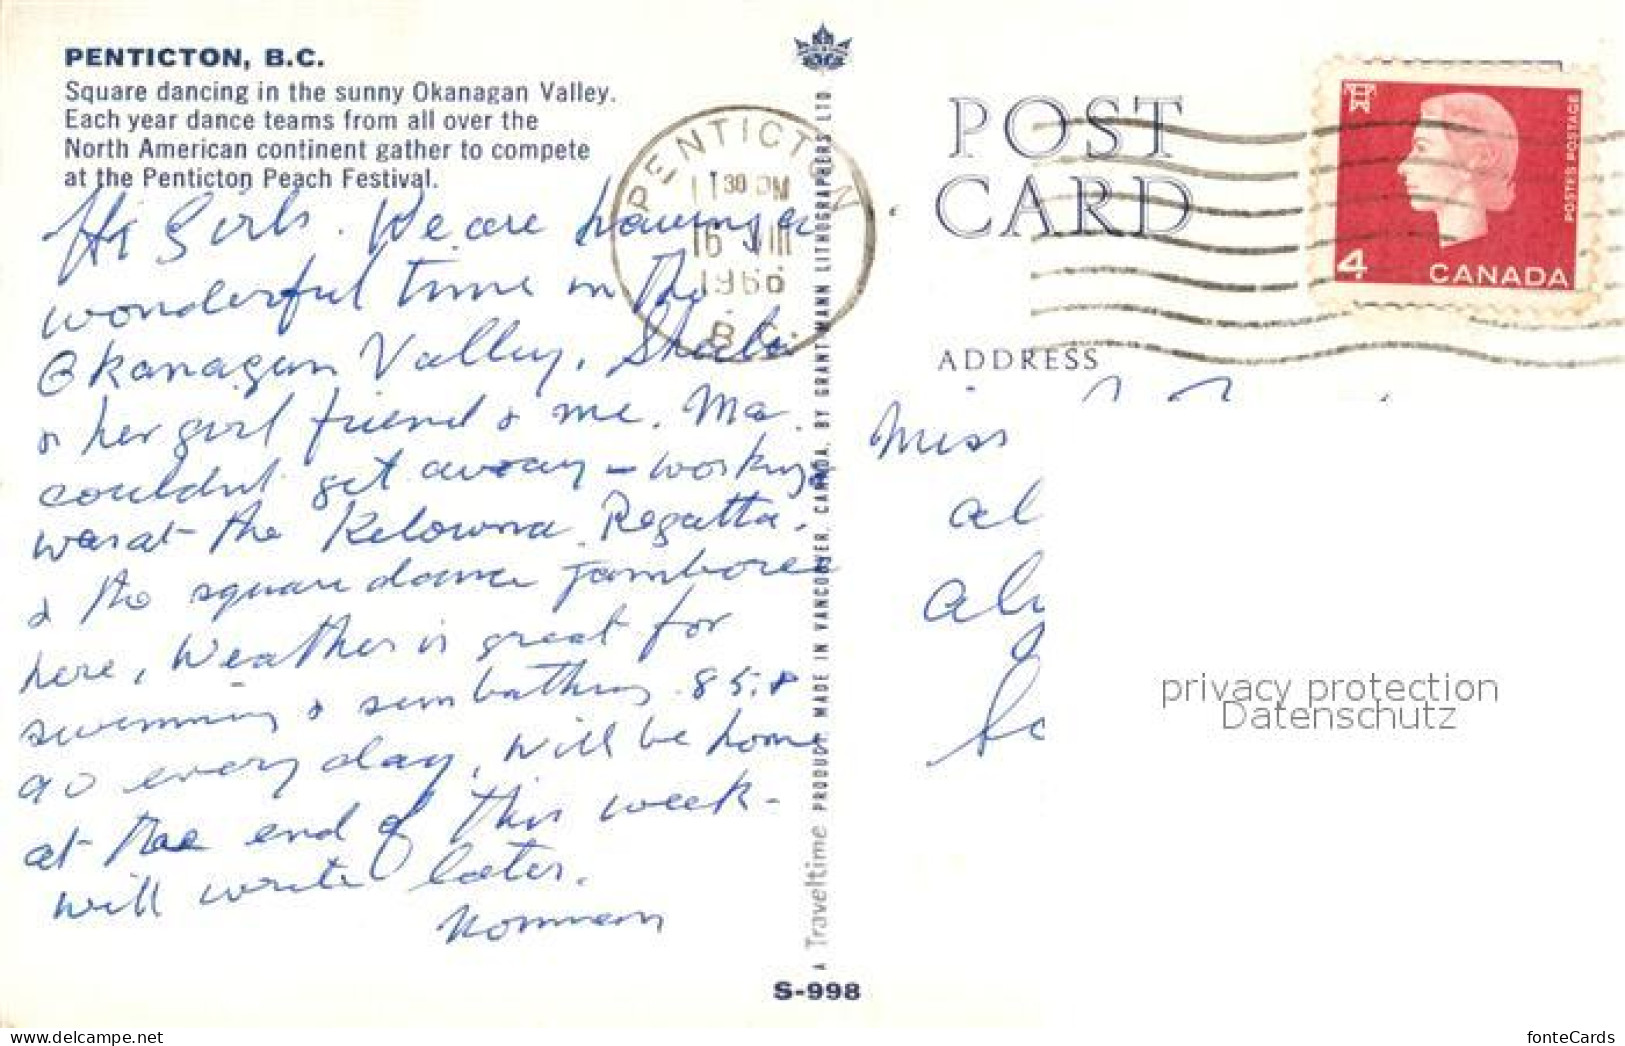 PENTICTON, B.C.
Square dancing in the sunny Okanagan Valley.
Each year dance teams from all over the
North American continent gather to compete
at the Penticton Peach Festival.
Hi Girls. We are having a
wonderful time in the
Okanagan Valley, Sheila
& her girl friend & me. Ma.
couldn't get away – working
was at the Kelowna Regatta.
& the square dance jamboree
here, Weather is great for
swimming & sun bathing 85 &
90 every day, will be home
at the end of this week-
will write later.
PENTICTON
30 PM
16 VIII
1966
B.C.
A Traveltime PRODUCT, MADE IN VANCOUVER, CANADA, BY GRANT-MANN LITHOGRAPHERS LTD.
S-998
POST
CARD
ADDRESS
POSTES POSTAGE
4 CANADA
Miss
privacy protection
Datenschutz
https://www.delcampe.net
fonteCards